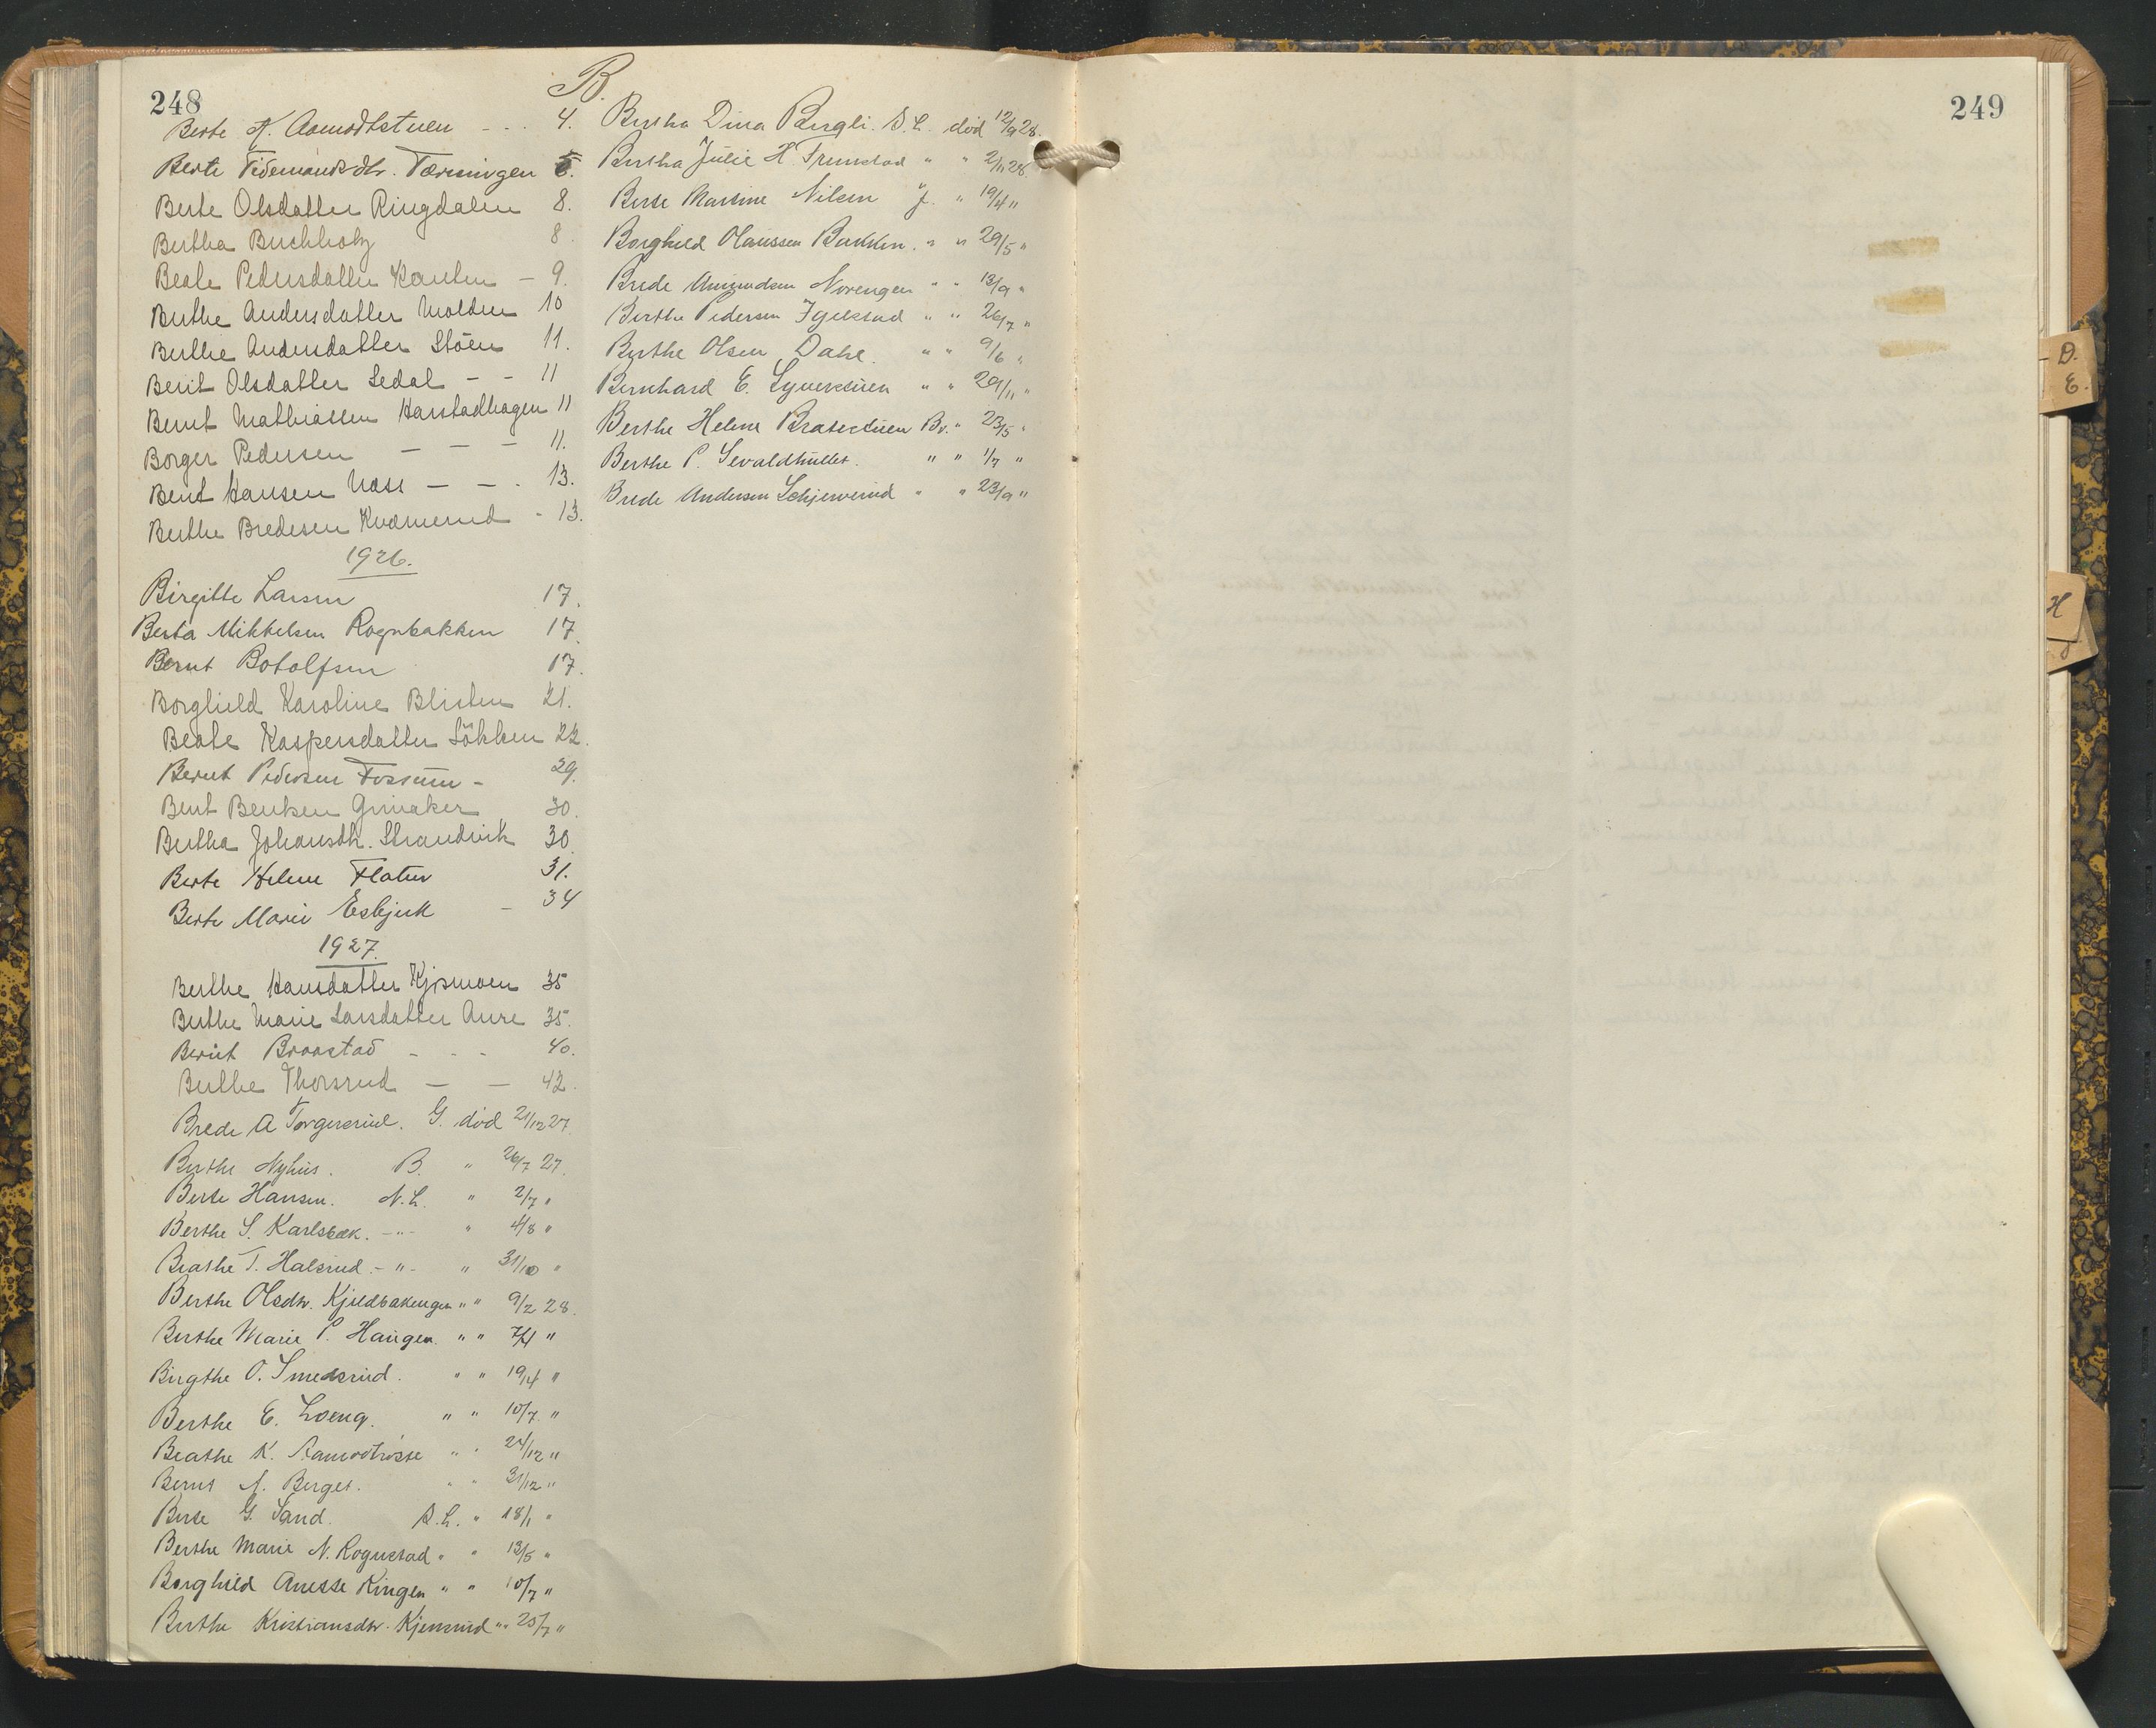 248
B.
Berte K. Aamodtstuen - - - 4.
Berte Tidemandsdtr. Tærningen 5.
Berte Olsdatter Ringdalen 8.
Bertha Buchholz 8.
Beate Pedersdatter Hauten - 9.
Berthe Andersdatter Molden 10
Berthe Andersdatter Støen 11.
Berit Olsdatter Sedal - - 11
Bernt Mathiassen Harstadhagen 11
Borger Pedersen - - - 11.
Bent Hansen Næss - - - 13.
Berthe Bredesen Kvæmerud - 13.
1926.
Birgitte Larsen 17.
Berta Mikkelsen Rognbakken 17.
Bernt Botolfsen 17.
Borghild Karoline Blisten 21.
Beate Kaspersdatter Løkken 22.
Bernt Pedersen Fossum - 29.
Bent Bentsen Grinaker 30.
Bertha Johansdtr. Strandvik 30.
Berte Helene Flaten 31.
Berte Marie Esbjerk - 34
1927.
Berthe Hansdatter Kjosmoen 35
Berthe Marie Larsdatter Aure 35.
Bernt Braastad - - - 40.
Berthe Thorsrud - - 42.
Brede A Torgersrud. G. död 21/12 27.
Berthe Nyhus. B. " 26/7 27.
Berte Hansen. N.L. " 2/7 "
Berthe S. Karlsbak. -"- " 4/8 "
Beathe T. Halsrud. -"- " 31/10 "
Berthe Olsdtr. Kjeldbakengen " " 9/2 28.
Berthe Marie P. Haugen. " " 7/4 "
Birgthe O. Smedsrud. " " 19/4 "
Berthe E. Loeng. " " 10/7 "
Beathe K. " " 24/12 "
Bernt A. Berget. " " 31/12 "
Berte G. Sand. S.L. " 18/1 "
Berthe Marie N. Rognstad " " 13/5 "
Borghild Anette Ringen " " 10/7 "
Berthe Kristiansdtr. Kjensrud " " 25/7 "
Bertha Dina Bergli. S.L. död 12/9 28.
Bertha Julie H. " " 2/11 28.
Berte Martine Nilsen J. " 19/4 "
Borghild Olaussen Bakken. " " 29/5 "
Brede Amundsen Norengen " " 13/9 "
Berthe Pedersen Igelsrud " " 26/7 "
Berthe Olsen Dahl. " " 9/6 "
Bernhard E. Syversetuen " " 29/11 "
Berthe Helene Brateteien Bv. " 23/5 "
Berthe P. Sevaldhullet. " " 1/7 "
Brede Andersen Schjerverud " " 23/9 "
249
D.
E.
H